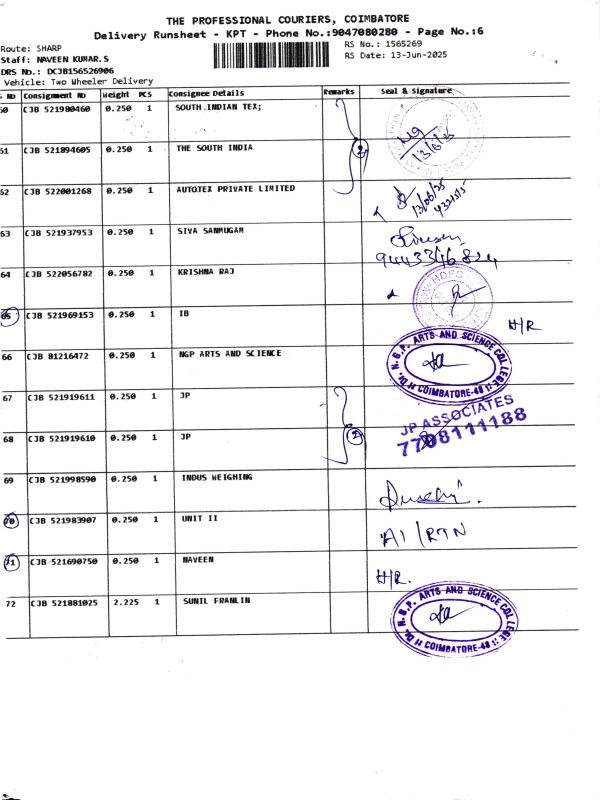 THE PROFESSIONAL COURIERS, COIMBATORE
Delivery Runsheet - KPT - Phone No.:9047080280 - Page No.:6
Route: SHARP
RS No.: 1565269
Staff: NAVEEN KUMAR.S
RS Date: 13-Jun-2025
DRS No.: DCJB156526906
Vehicle: Two Wheeler Delivery
S NO Consignment NO Weight PCS Consignee Details Remarks Seal & Signature
60 CJB 521980460 0.250 1 SOUTH INDIAN TEX;
13/6/25
61 CJB 521894605 0.250 1 THE SOUTH INDIA 2
62 CJB 522001268 0.250 1 AUTOTEX PRIVATE LIMITED
13/06/25
63 CJB 521937953 0.250 1 SIVA SANMUGAM
64 CJB 522056782 0.250 1 KRISHNA RAJ
HDFC
65 CJB 521969153 0.250 1 IB H/R
66 CJB 81216472 0.250 1 NGP ARTS AND SCIENCE
Dr. N.G.P. ARTS AND SCIENCE COLLEGE
COIMBATORE-48
67 CJB 521919611 0.250 1 JP
JP ASSOCIATES
7708111188
68 CJB 521919610 0.250 1 JP 2
69 CJB 521998590 0.250 1 INDUS WEIGHING
70 CJB 521983907 0.250 1 UNIT II A1/RTN
71 CJB 521690750 0.250 1 NAVEEN H/R.
72 CJB 521881025 2.225 1 SUNIL FRANLIN
Dr. N.G.P. ARTS AND SCIENCE COLLEGE
COIMBATORE-48